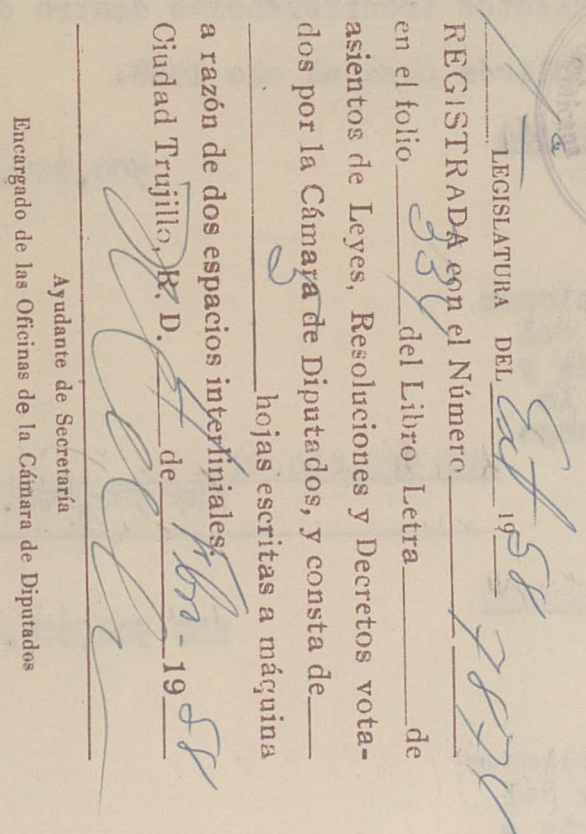 1a LEGISLATURA DEL Ext 1958
REGISTRADA con el Número 7878
en el folio 334 del Libro Letra de
asientos de Leyes, Resoluciones y Decretos vota-
dos por la Cámara de Diputados, y consta de
5 hojas escritas a máquina
a razón de dos espacios interliniales.
Ciudad Trujillo, R. D. de Fbro- 1958
Ayudante de Secretaría
Encargado de las Oficinas de la Cámara de Diputados